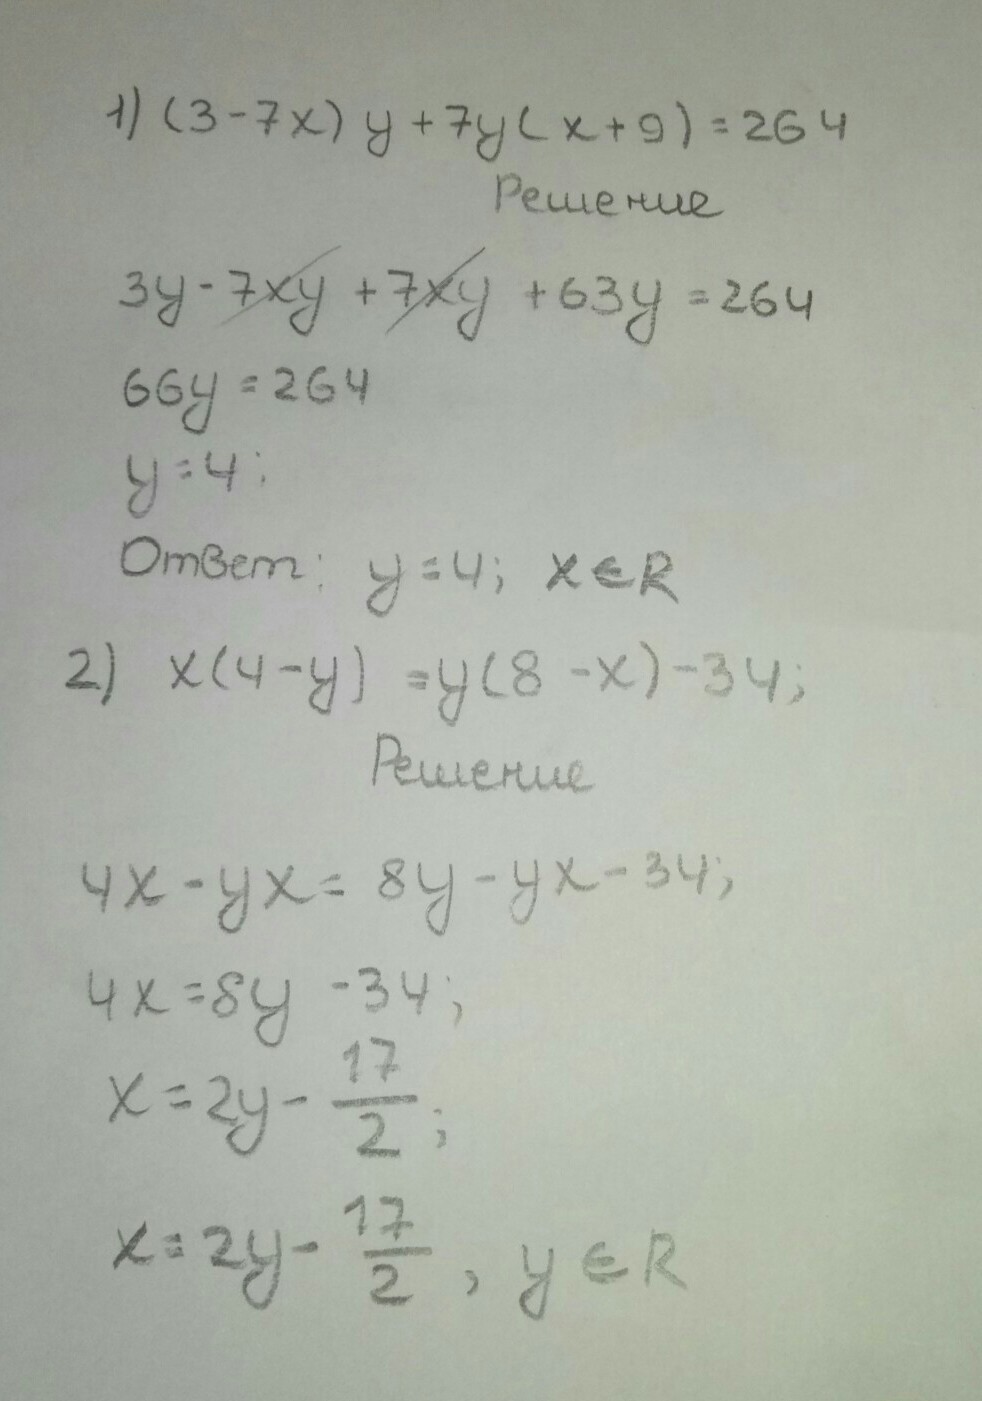 1) (3-7x)y+7y(x+9)=264
Решение
3y-7xy+7xy+63y=264
66y=264
y=4;
Ответ: y=4; x∈R
2) x(4-y)=y(8-x)-34;
Решение
4x-yx=8y-yx-34;
4x=8y-34;
x=2y-17/2;
x=2y-17/2, y∈R